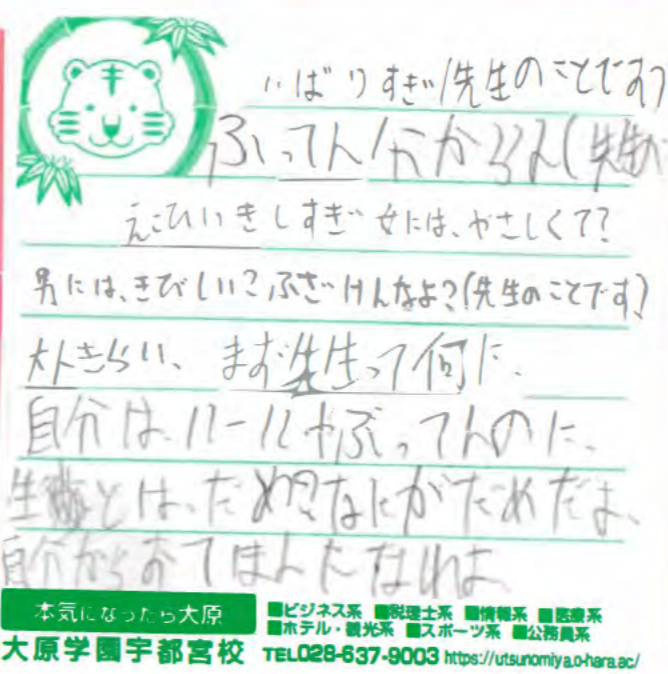 いばりすぎ(先生のことです)
ふってん分からん(先生が
えこひいきしすぎ 女には、やさしくて?
男には、きびしい?ふざけんなよ?(先生のことです)
大人きらい、まず先生って何に、
自分は、ルールやぶってんのに、
生徒とは、だめ?なにがだめだよ、
自分からおてほんになれよ
本気になったら大原
■ビジネス系 ■税理士系 ■情報系 ■医療系
■ホテル・観光系 ■スポーツ系 ■公務員系
大原学園宇都宮校 TEL028-637-9003 https://utsunomiya.o-hara.ac/